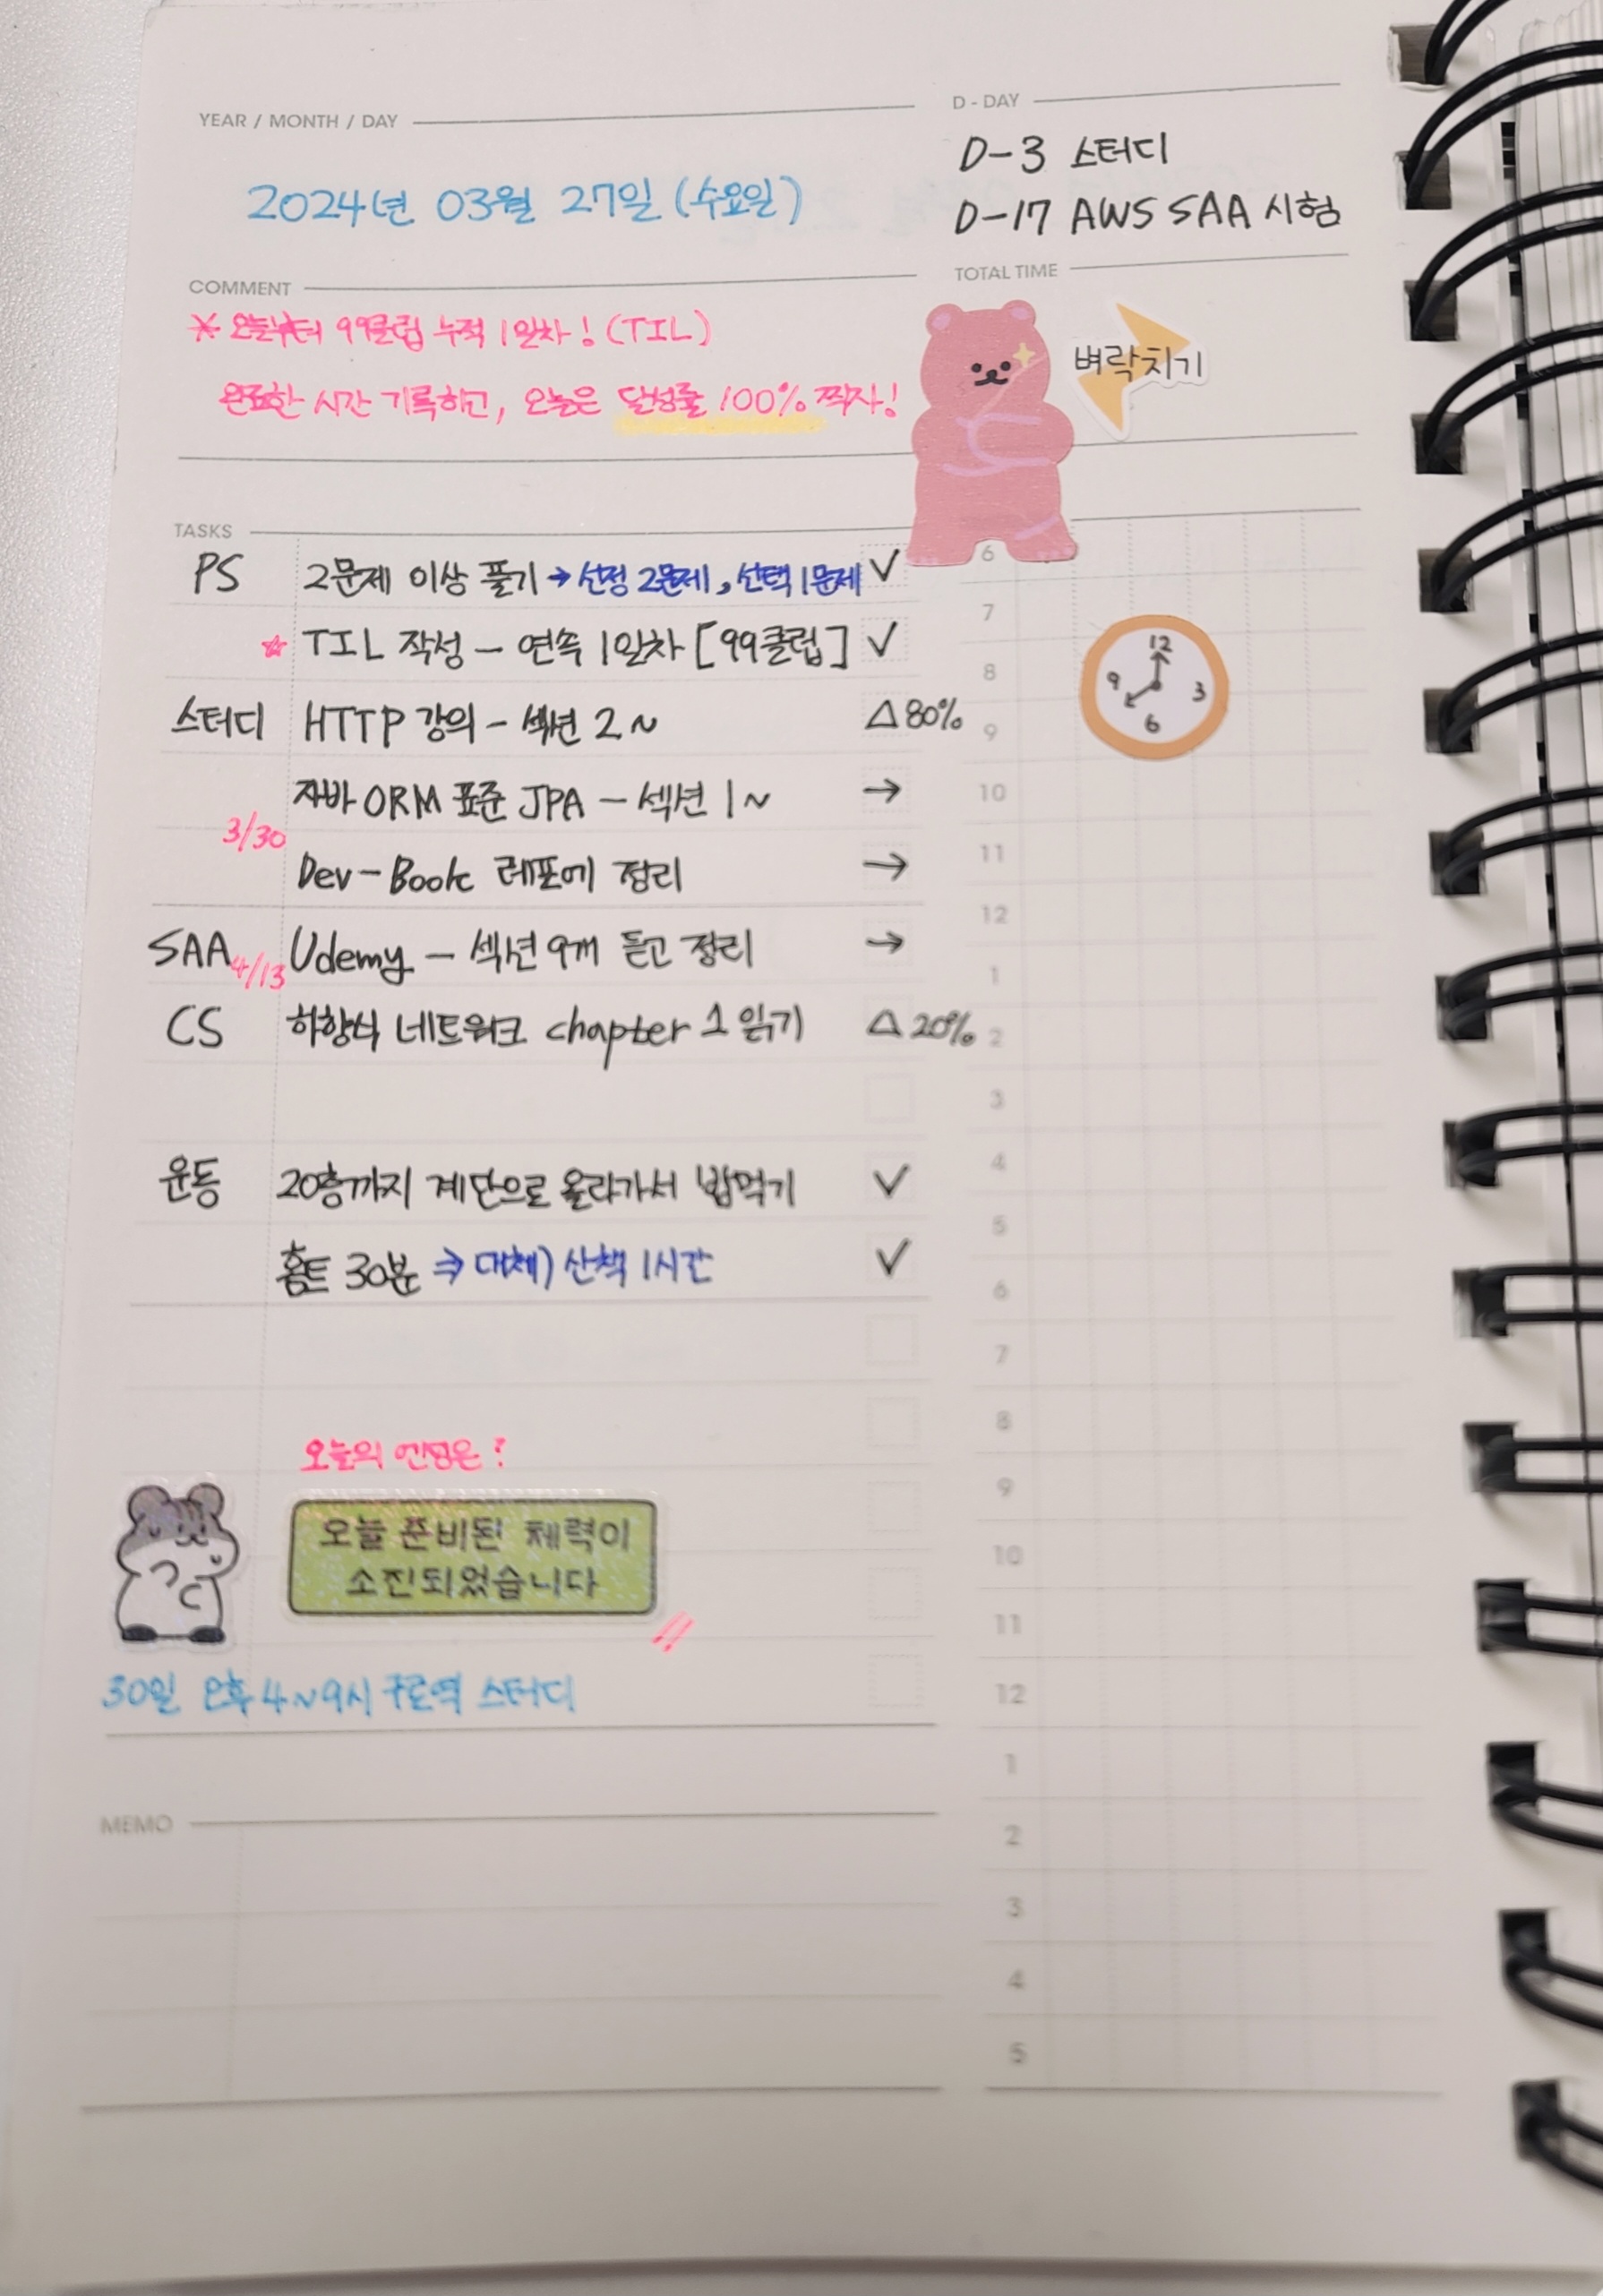 YEAR / MONTH / DAY
2024년 03월 27일 (수요일)
D - DAY
D-3 스터디
D-17 AWS SAA 시험
COMMENT
※ 오늘부터 99클럽 누적 1일차! (TIL)
완료한 시간 기록하고, 오늘은 달성률 100% 찍자!
TOTAL TIME
벼락치기
TASKS
PS 2문제 이상 풀기 → 선정 2문제, 선택 1문제 ✓
☆ TIL 작성 - 연속 1일차 [99클럽] ✓
스터디 HTTP 강의 - 섹션 2 ~ △ 80%
자바 ORM 표준 JPA - 섹션 1 ~ →
3/30
Dev-Book 레포에 정리 →
SAA 4/13 Udemy - 섹션 9개 듣고 정리 →
CS 하향식 네트워크 chapter 1 읽기 △ 20%
운동 20층까지 계단으로 올라가서 밥먹기 ✓
홈트 30분 ⇒ 대체) 산책 1시간 ✓
오늘의
오늘 준비된 체력이
소진되었습니다
!!
30일 오후 4~9시 구로역 스터디
MEMO
6
7
8
9
10
11
12
1
2
3
4
5
6
7
8
9
10
11
12
1
2
3
4
5
12
9
3
6